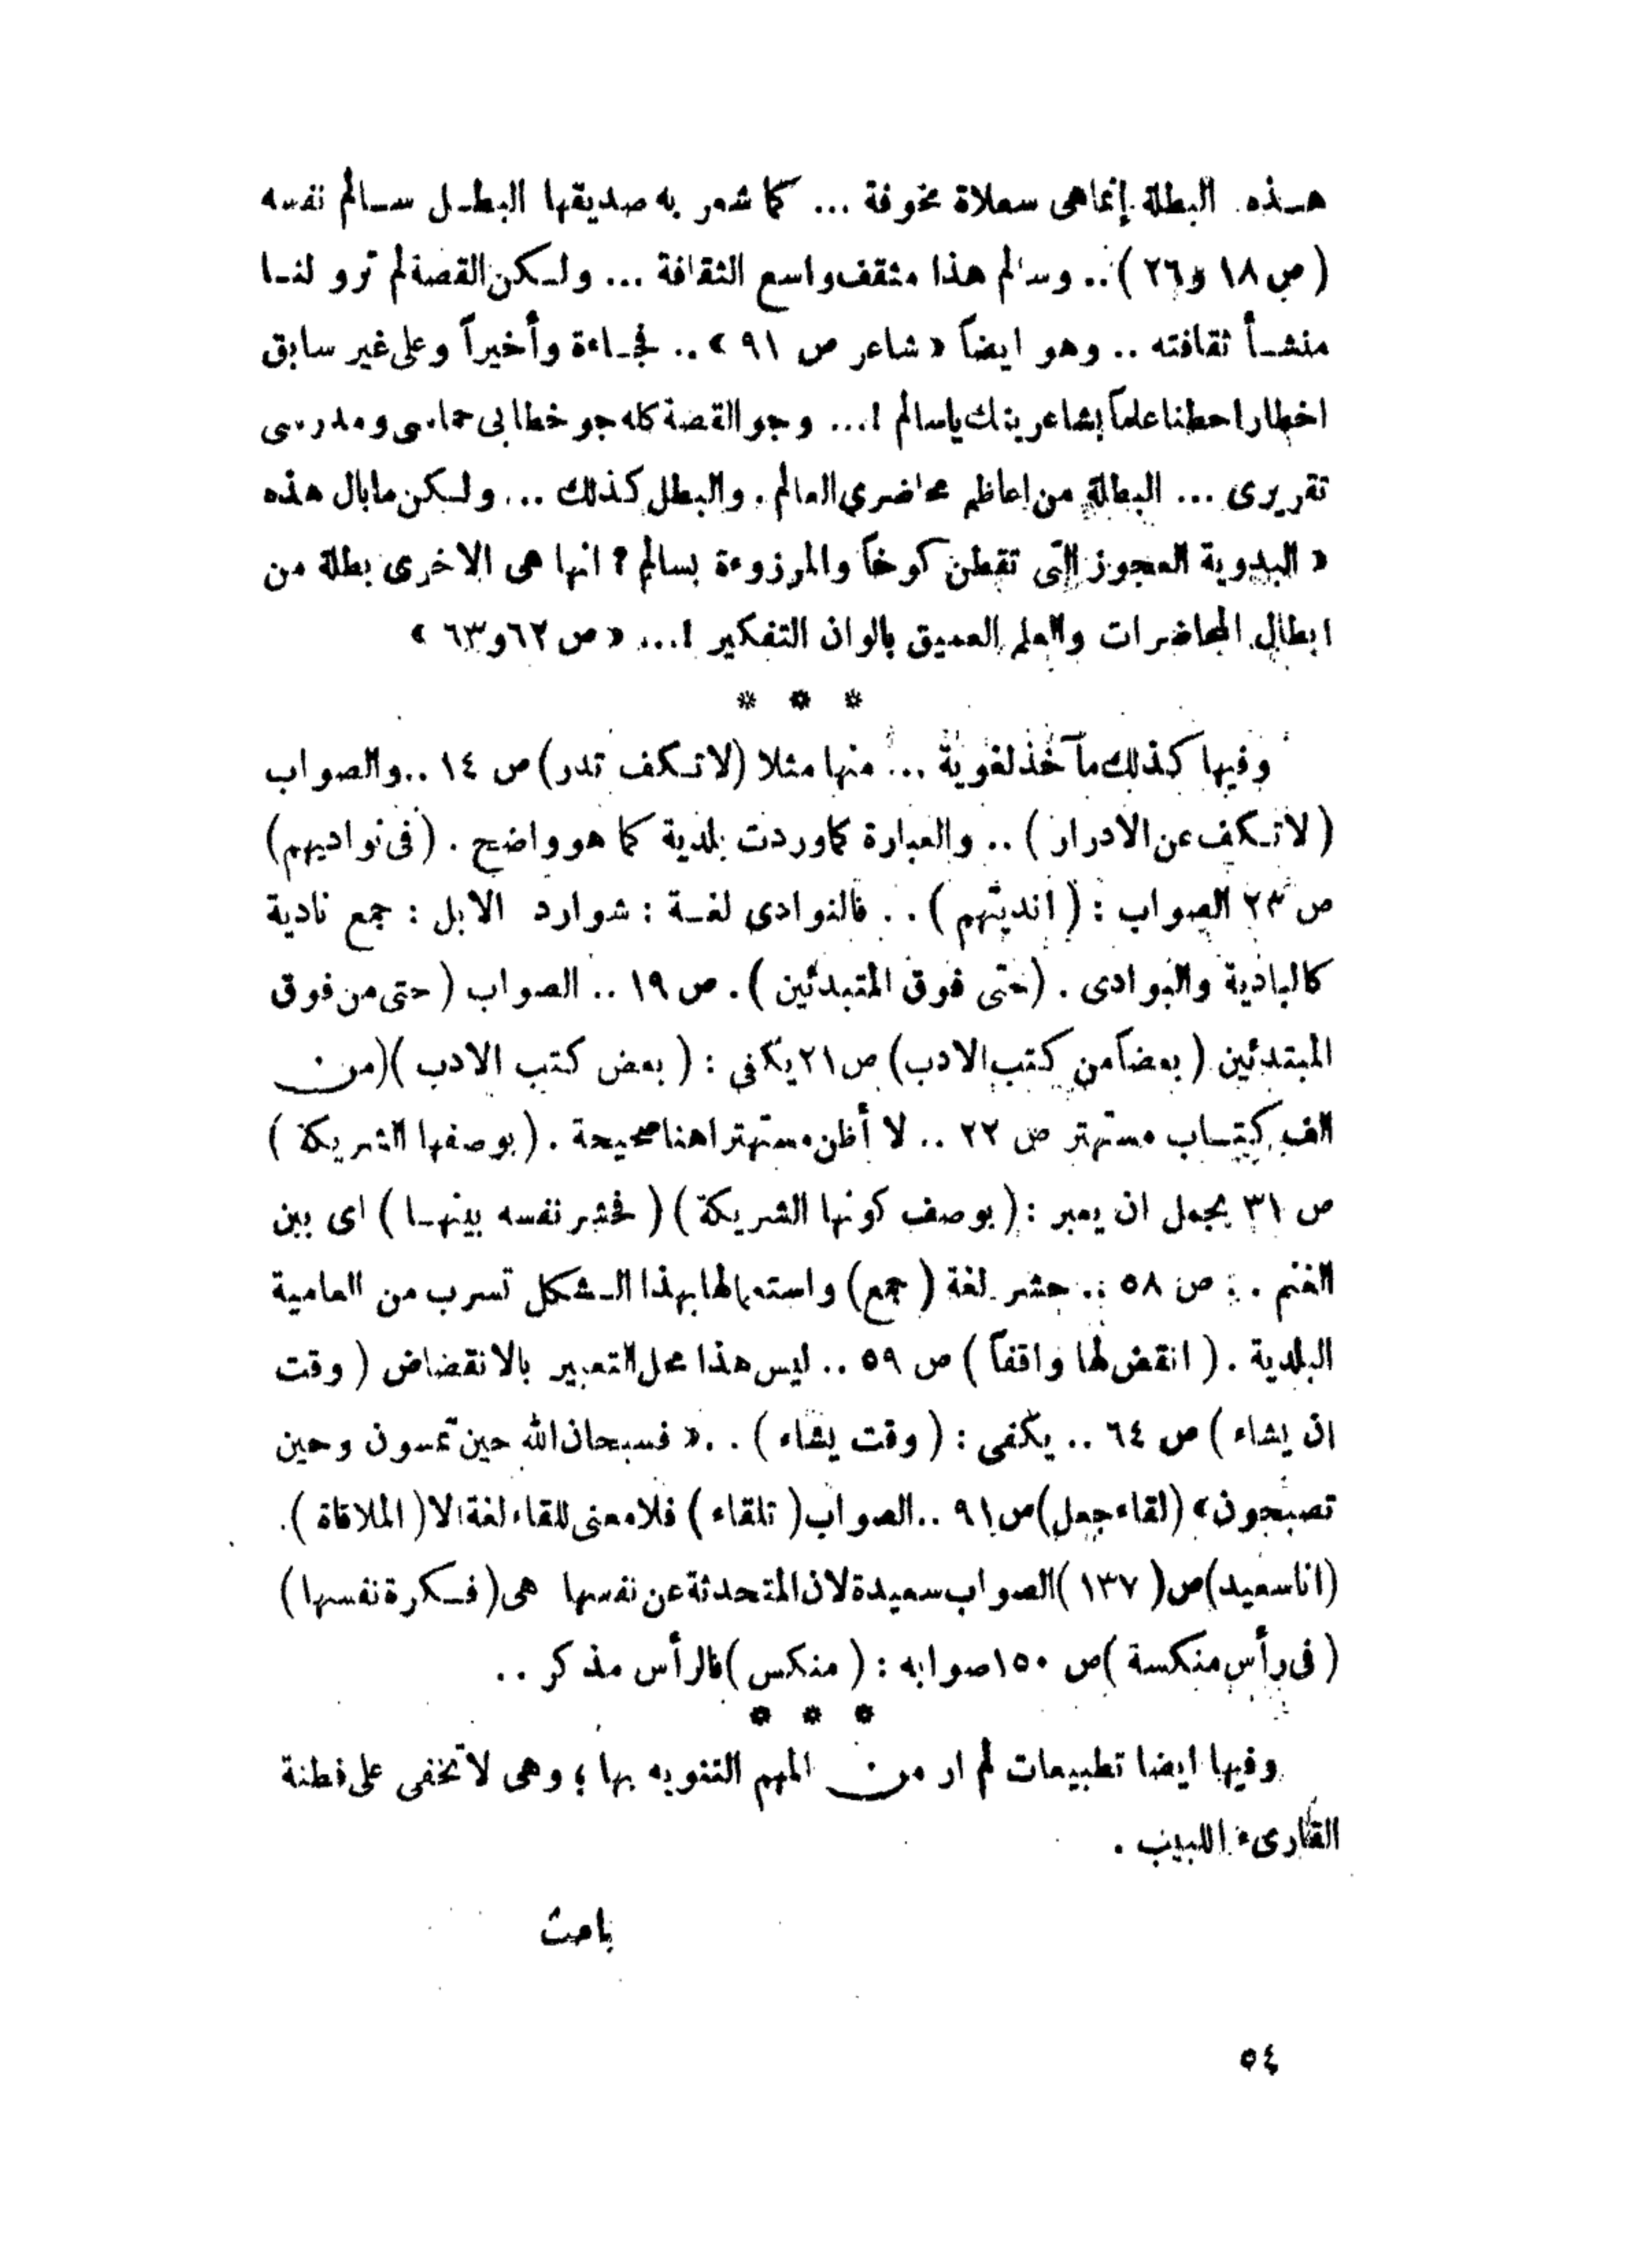 هذه البطلة إنما هى سعلاة مخوفة ... كما شعر به صديقها البطل سالم نفسه
( ص ١٨ و ٢٦ ) .. وسالم هذا مثقف واسع الثقافة ... ولكن القصة لم ترو لنا
منشأ ثقافته .. وهو ايضاً « شاعر ص ٩١ » .. فجاءة وأخيراً وعلى غير سابق
اخطار احطنا علماً بشاعريتك ياسالم ! ... وجو القصة كله جو خطابى حماسى ومدرسى
تقريرى ... البطلة من اعاظم محاضري العالم . والبطل كذلك ... ولكن مابال هذه
« البدوية العجوز التى تقطن كوخاً والمرزوءة بسالم ؟ انها هى الاخرى بطلة من
ابطال المحاضرات والعلم العميق بالوان التفكير ! ... « ص ٦٢ و ٦٣ »
* * *
وفيها كذلك مآخذ لغوية ... منها مثلا (لا تكف تدر) ص ١٤ .. والصواب
( لا تكف عن الادرار ) .. والعبارة كما وردت بلدية كما هو واضح . (فى نواديهم)
ص ٢٣ الصواب : ( انديتهم ) . . فالنوادى لغة : شوارد الابل : جمع نادية
كالبادية والبوادى . (حتى فوق المتبدئين ) . ص ١٩ .. الصواب ( حتى من فوق
المبتدئين ( بعضاً من كتب الادب) ص ٢١ يكفى : ( بعض كتب الادب )(من
الف كتاب مستهتر ص ٢٢ .. لا أظن مستهترا هنا صحيحة . (بوصفها الشريكة )
ص ٣١ يجمل ان يعبر : (بوصف كونها الشريكة ) ( فحشر نفسه بينها ) اى بين
الغنم . . ص ٥٨ .. حشر لغة ( جمع ) واستعمالها بهذا الشكل تسرب من العامية
البلدية . ( انقض لها واقفاً ) ص ٥٩ .. ليس هذا محل التعبير بالانقضاض ( وقت
ان يشاء ) ص ٦٤ .. يكفى : ( وقت يشاء ) . . « فسبحان الله حين تمسون وحين
تصبحون » (لقاء جعل) ص ٩١ .. الصواب ( تلقاء ) فلا معنى للقاء لغة الا ( الملاقاة ) .
(انا سعيد) ص ( ١٣٧ ) الصواب سعيدة لان المتحدثة عن نفسها هى (فكرة نفسها)
( فى رأس منكسة ) ص ١٥٠ صوابه : ( منكس ) فالرأس مذكر ..
* * *
وفيها ايضا تطبيعات لم ار من المهم التنويه بها ؛ وهى لا تخفى على فطنة
القارىء اللبيب .
باحث
٥٤